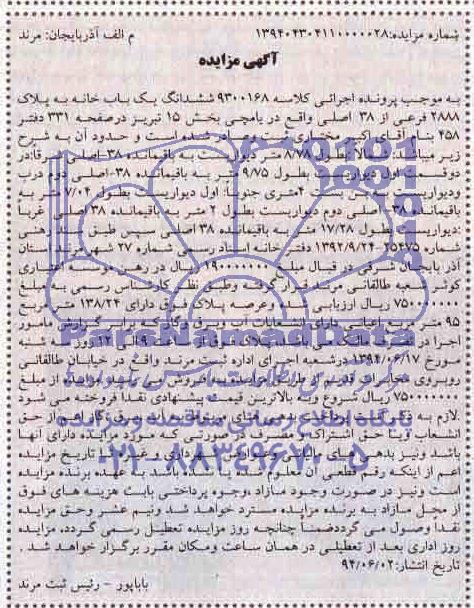 شماره مزایده:۱۳۹۴۰۴۳۰۴۱۱۰۰۰۰۰۲۸ م الف آذربایجان: مرند
آگهی مزایده
به موجب پرونده اجرائی کلاسه ۹۳۰۰۱۶۸ ششدانگ یک باب خانه به پلاک
۲۸۸۸ فرعی از ۳۸ اصلی واقع در یامچی بخش ۱۵ تبریز درصفحه ۳۳۱ دفتر
۴۵۸ بنام آقای اکبر مختاری ثبت وصادر شده است و حدود آن به شرح
زیر میباشد: شمالا بطول ۸/۷۸ متر دیواریست به باقیمانده ۳۸-اصلی شرقا:در
دوقسمت اول دیواریست بطول ۹/۷۵ متر به باقیمانده ۳۸-اصلی دوم درب
ودیواریست به کوچه بنبست ۴متری جنوبا: اول دیواریست بطول ۷/۰۴ متر به
باقیمانده ۳۸-اصلی دوم دیواریست بطول ۲ متر به باقیمانده ۳۸ اصلی غربا
:دیواریست بطول ۱۷/۲۸ متر به باقیمانده ۳۸ اصلی سپس طبق سند رهنی
شماره ۲۵۴۷۵-۱۳۹۲/۹/۲۴ دفتر خانه اسناد رسمی شماره ۲۷ شهر مرند استان
آذربایجان شرقی در قبال مبلغ ۱۹۰۰۰۰۰۰۰ ریال در رهن موسسه اعتباری
کوثر شعبه طالقانی مرند قرار گرفته وطبق نظر کارشناس رسمی به مبلغ
۷۵۰۰۰۰۰۰۰ ریال ارزیابی شده و عرصه پلاک فوق دارای ۱۳۸/۲۴ متر مربع
۹۵ متر مربع اعیانی دارای انشعابات آب وبرق وگاز که برابر گزارش مامور
اجرا در تصرف مالک می باشد پلاک فوق از ساعت ۹ الی ۱۲ روز سه شنبه
مورخ ۱۳۹۴/۰۶/۱۷ درشعبه اجرای اداره ثبت مرند واقع در خیابان طالقانی
روبروی مخابرات قدیم از طریق مزایده به فروش می رسد مزایده از مبلغ
۷۵۰۰۰۰۰۰۰ ریال شروع وبه بالاترین قیمت پیشنهادی نقدا فروخته می شود
.لازم به ذکر است پرداخت بدهی های مربوط به آب برق گاز اعم از حق
انشعاب ویا حق اشتراک و مصرف در صورتی که مورد مزایده دارای آنها
باشد ونیز بدهی های مالیاتی وعوارض شهرداری و غیره تا تاریخ مزایده
اعم از اینکه رقم قطعی آن معلوم شده یا نشده باشد به عهده برنده مزایده
است ونیز در صورت وجود مازاد ،وجوه پرداختی بابت هزینه های فوق
از محل مازاد به برنده مزایده مسترد خواهد شد ونیم عشر وحق مزایده
نقداً وصول می گرددضمناً چنانچه روز مزایده تعطیل رسمی گردد، مزایده
روز اداری بعد از تعطیلی در همان ساعت ومکان مقرر برگزار خواهد شد .
تاریخ انتشار:۹۴/۰۶/۰۲
باباپور - رئیس ثبت مرند
ParsNamadData
پایگاه اطلاع رسانی مناقصه و مزایده
۰۲۱-۸۸۳۴۹۶۷۰-۵